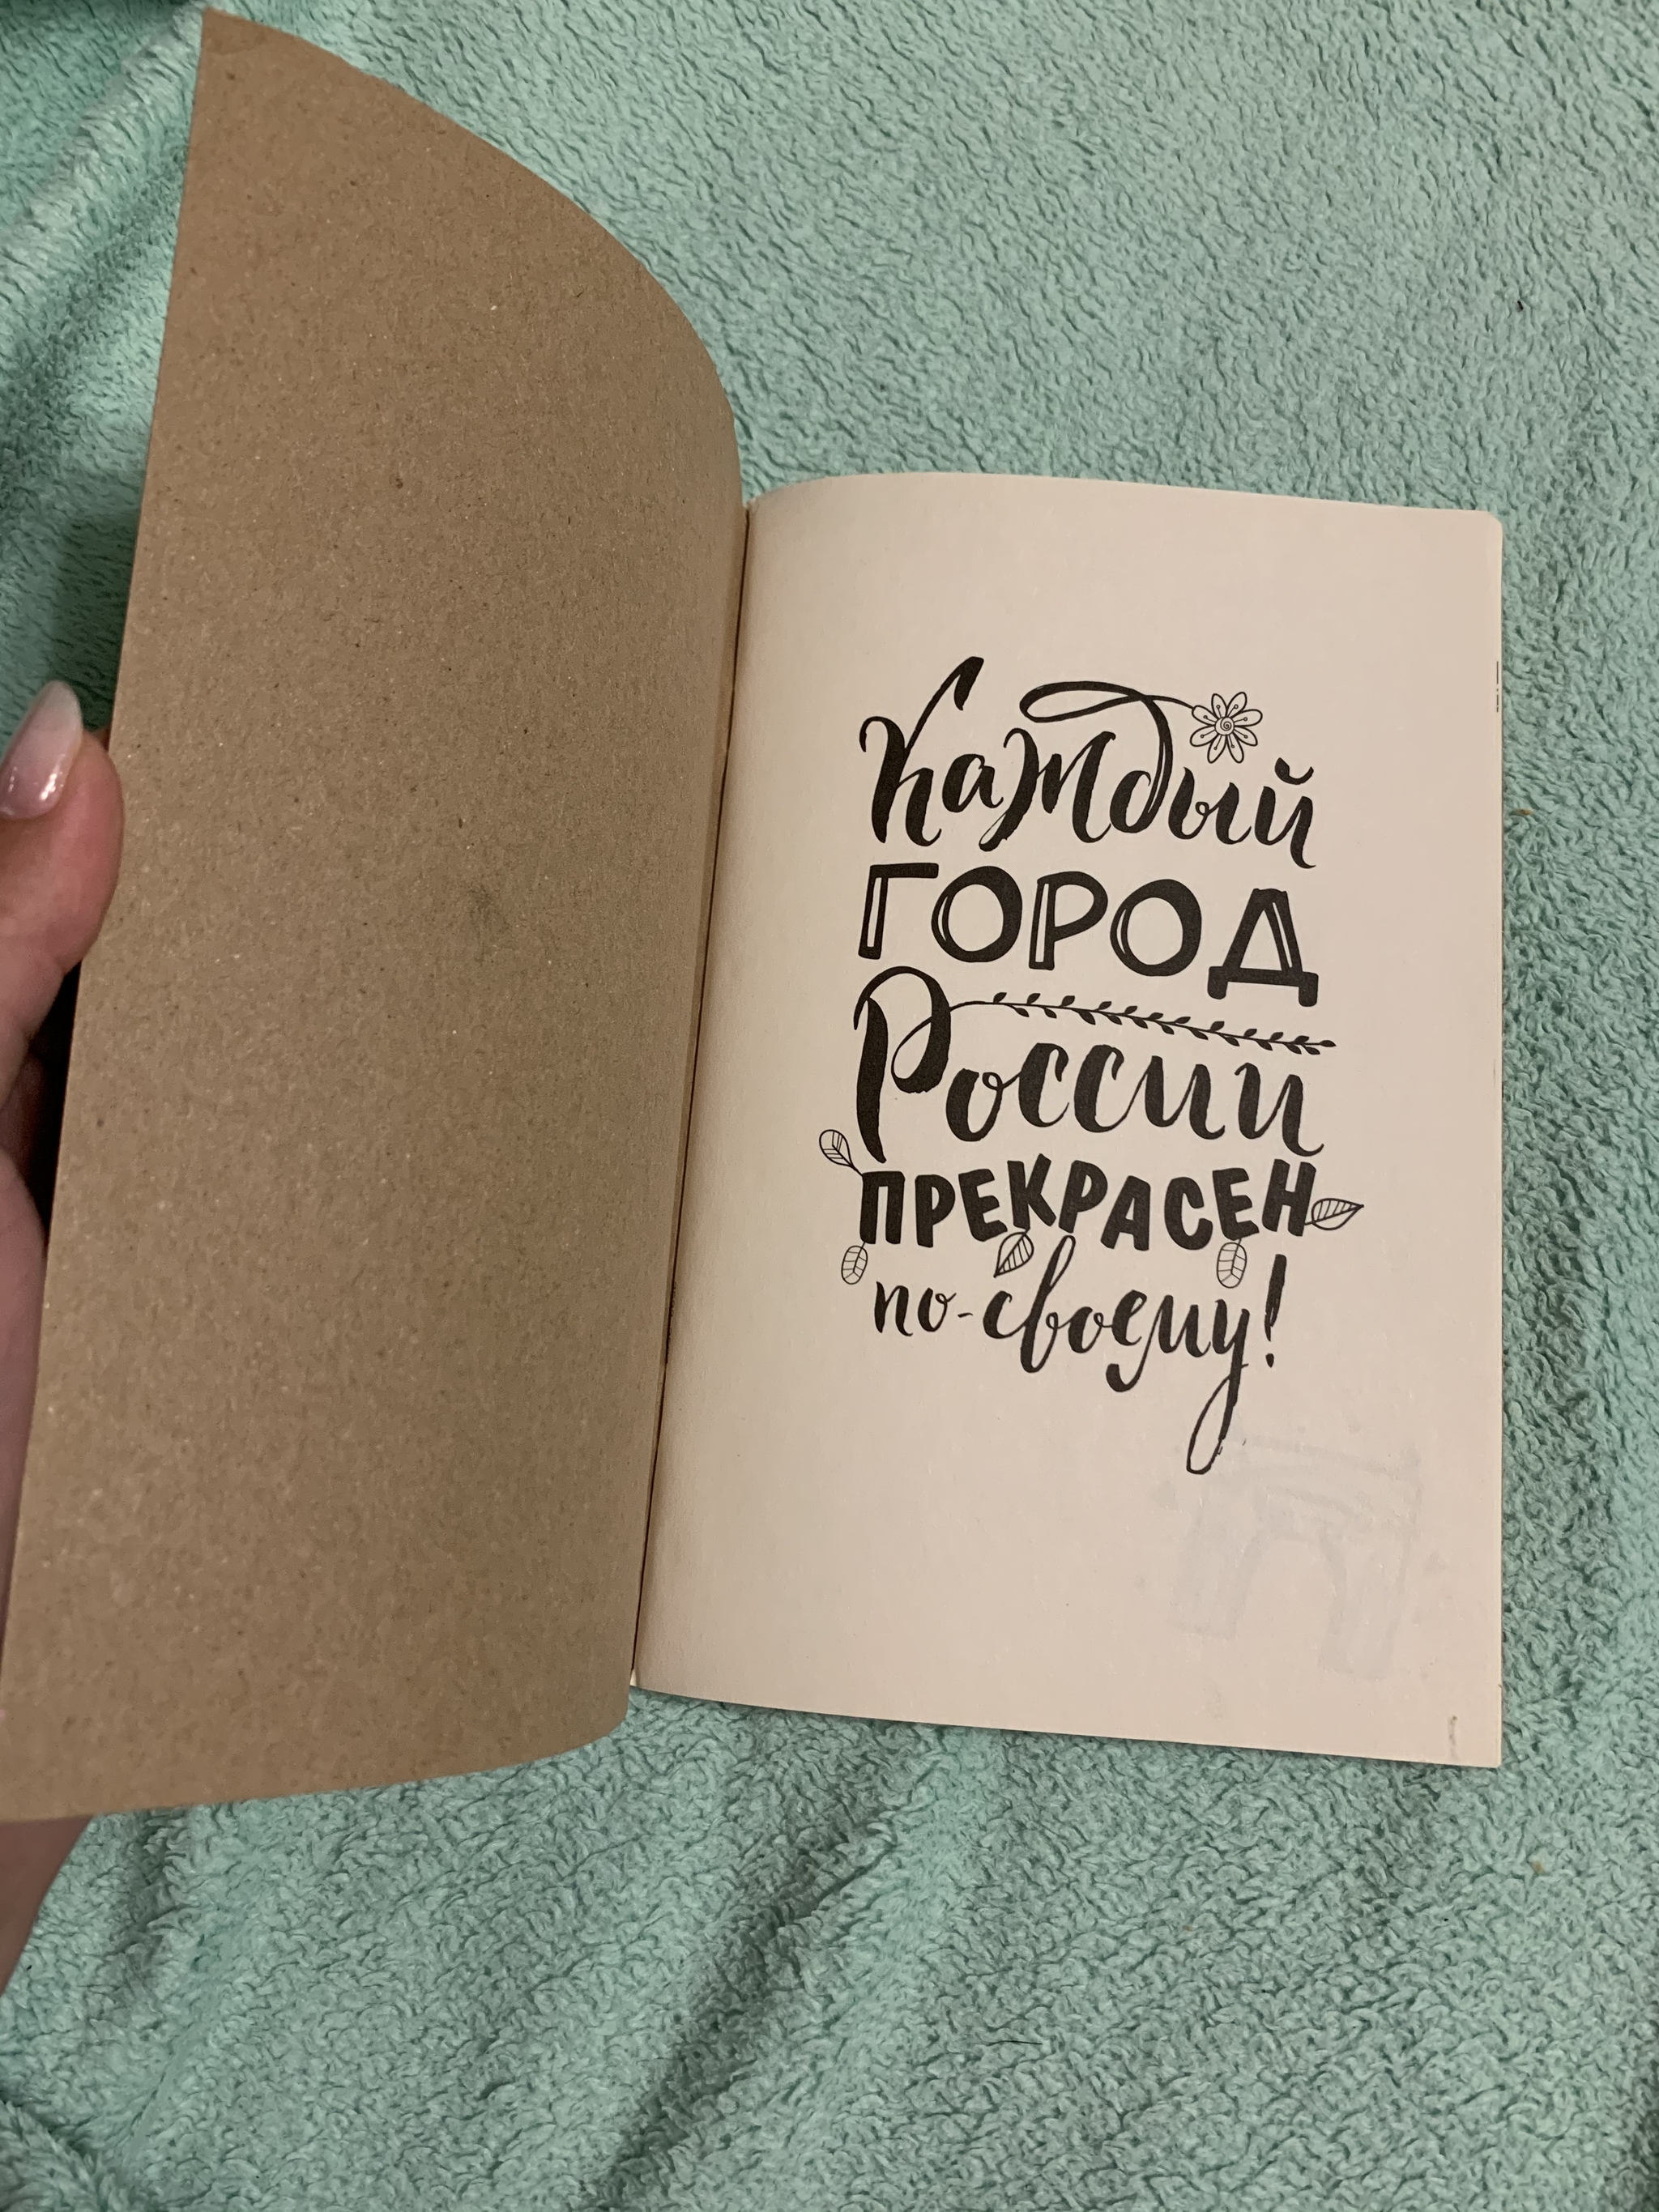 Каждый
ГОРОД
России
ПРЕКРАСЕН
по-своему!